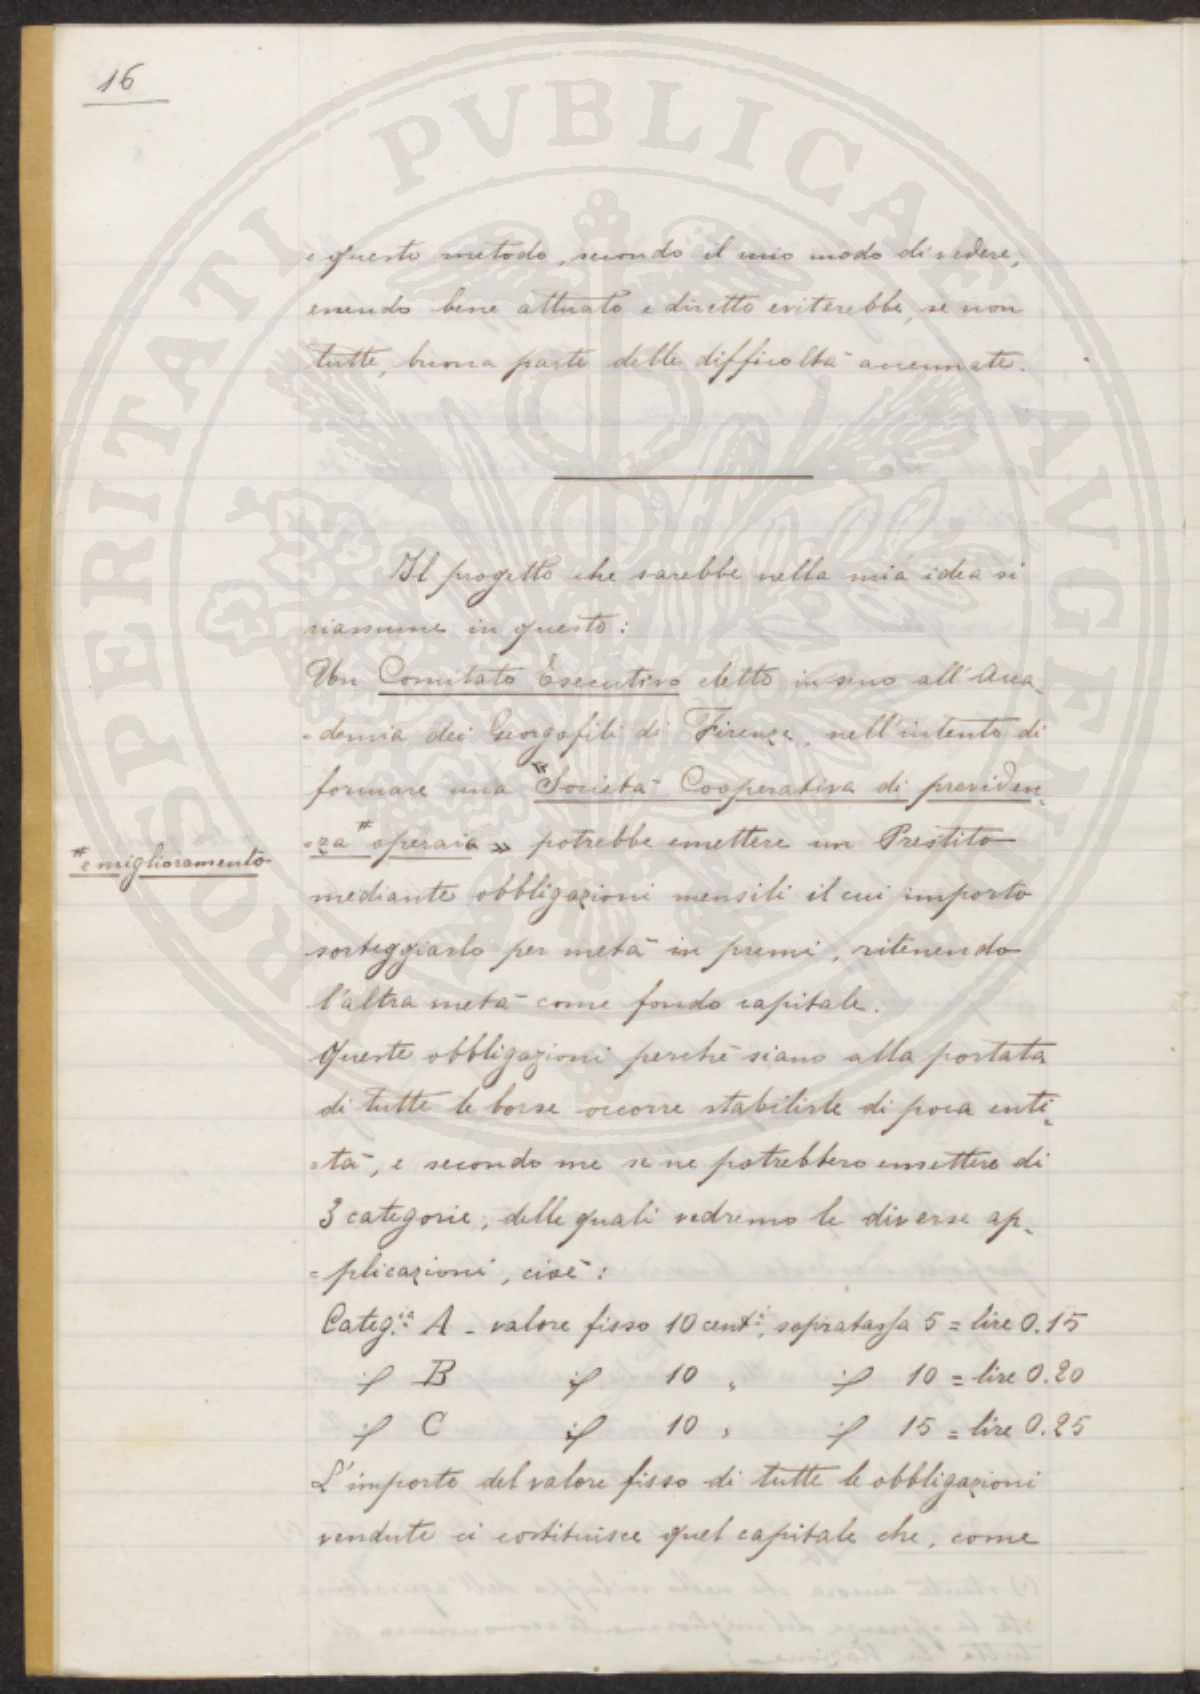 16
PROSPERITATI PVBLICAE AVGENDAE
e questo metodo, secondo il mio modo di vedere,
essendo bene attuato e diretto eviterebbe, se non
tutte, buona parte delle difficoltà accennate.
Il progetto che sarebbe nella mia idea si
riassume in questo:
Un Comitato Esecutivo eletto in seno all'Acca=
=demia dei Georgofili di Firenze, nell'intento di
formare una "Società Cooperativa di previden=
=za # operaia" potrebbe emettere un Prestito
# e miglioramento
mediante obbligazioni mensili il cui importo
sorteggiarlo per metà in premi, ritenendo
l'altra metà come fondo capitale.
Queste obbligazioni perchè siano alla portata
di tutte le borse occorre stabilirle di poca enti=
=tà, e secondo me se ne potrebbero emettere di
3 categorie, delle quali vedremo le diverse ap=
=plicazioni, cioè:
Categ.ia A - valore fisso 10 cent.i, sopratassa 5 = lire 0.15
if B if 10 , if 10 = lire 0.20
if C if 10 , if 15 = lire 0.25
L'importo del valore fisso di tutte le obbligazioni
vendute ci costituisce quel capitale che, come